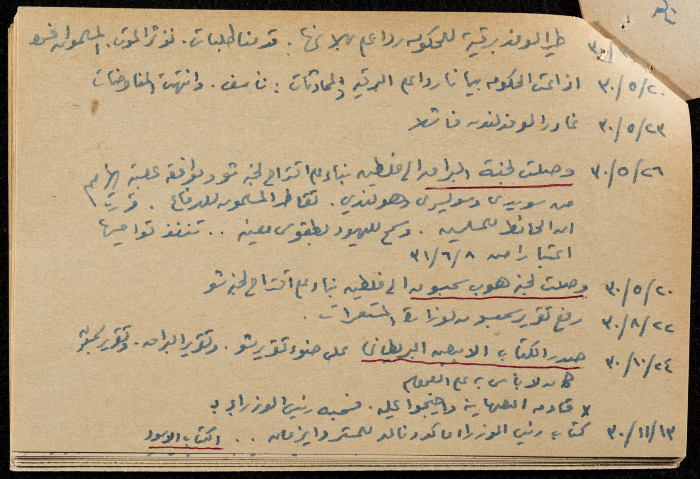 طير الوفد برقية للحكومة ردا على بلاغها : قدمنا طلبات .
٣٠/٥/٢٠ اذاعت الحكومة بيانا ردا على البرقية والمحادثات : تأسف . وانتهت المفاوضات
٣٠/٥/٢٣ غادر الوفد لندن فاشلا
٣٠/٥/٢٦ وصلت لجنة البراق الى فلسطين بناء على اقتراح لجنة شو وموافقة عصبة الامم
من سويدي وسويسري وهولندي . تقاطر المسلمون للدفاع . قررت
ان الحائط للمسلمين . وسمح لليهود بطقوس معينة . . تنفذ تواصيها
اعتبارا من ٣١/٦/٨
٣٠/٥/٢٠ وصلت لجنة هوب سمبسون الى فلسطين بناء على اقتراح لجنة شو
٣٠/٨/٢٢ رفع تقرير سمبسون لوزارة المستعمرات .
٣٠/١٠/٢٤ صدر الكتاب الابيض البريطاني على ضوء تقرير شو . وتقرير البراق . وتقرير سمبسون
كان لا بأس به على العموم
x قاومه الصهاينة واحتجوا عليه . فسحبه رئيس الوزراء ب
٣٠/١١/١٣ كتاب رئيس الوزراء ماكدونالد للمستر وايزمان . . الكتاب الاسود